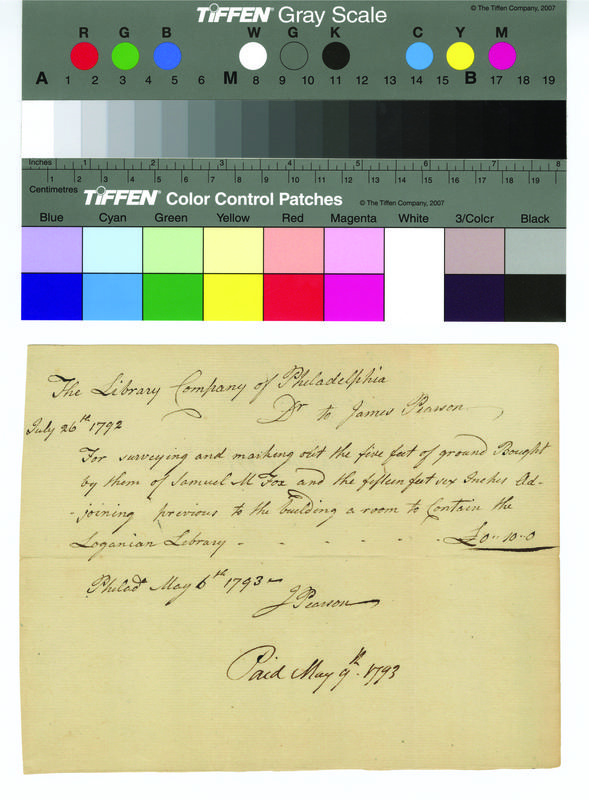 TIFFEN® Gray Scale
© The Tiffen Company, 2007
R G B W G K C Y M
A 1 2 3 4 5 6 M 8 9 10 11 12 13 14 15 B 17 18 19
Inches 1 2 3 4 5 6 7 8
1 2 3 4 5 6 7 8 9 10 11 12 13 14 15 16 17 18 19
Centimetres
TIFFEN® Color Control Patches © The Tiffen Company, 2007
Blue Cyan Green Yellow Red Magenta White 3/Color Black
The Library Company of Philadelphia
Dr to James Pearson
July 26th 1792
For surveying and marking out the five feet of ground Bought
by them of Samuel M Fox and the fifteen feet sex Inches Ad-
-joining previous to the building a room to Contain the
Loganian Library - - - - - - £0..10..0
Philad May 6th 1793
J Pearson
Paid May 9th 1793